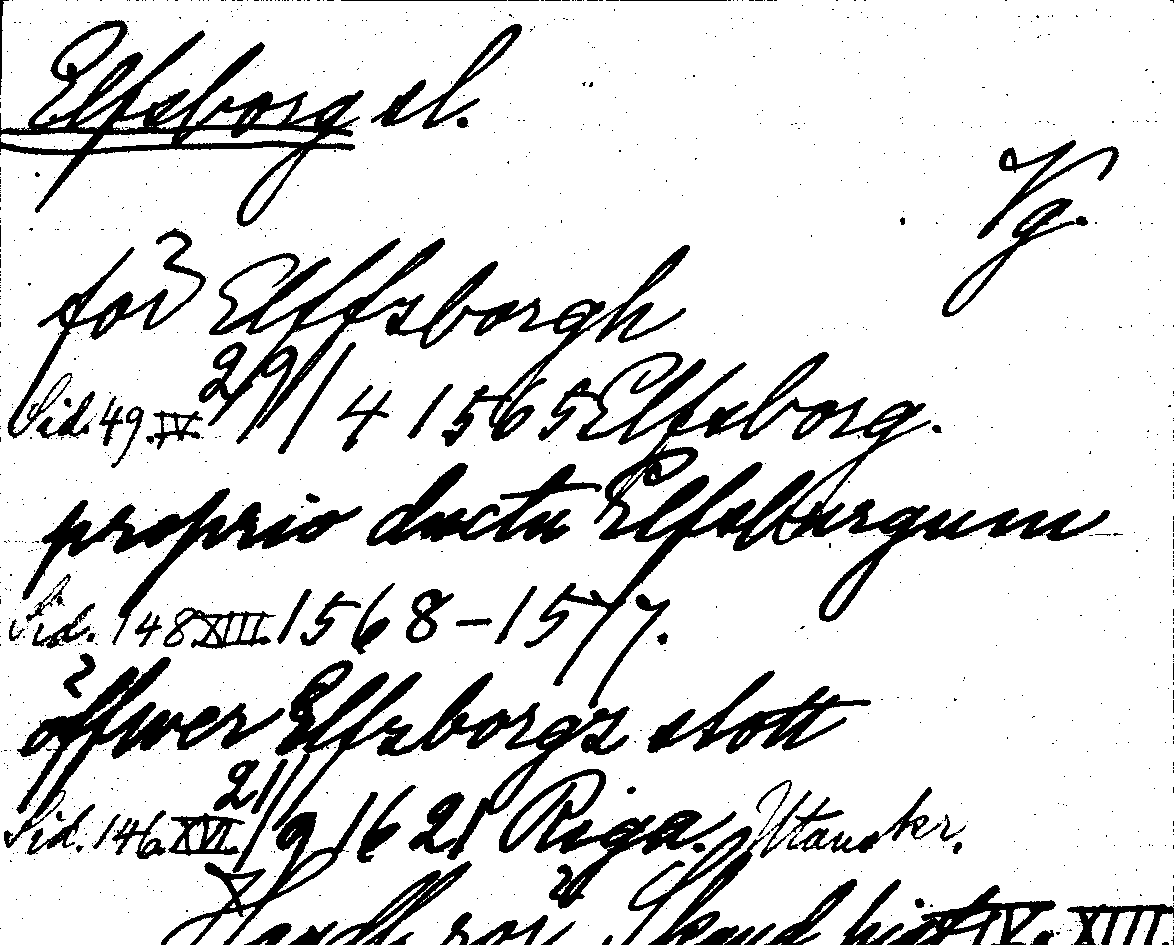 Elfsborg sl.
Vg.
för Elffsborgh
Sid. 49. IV. 29/4 1565 Elfsborg.
proprio ductu Elfsburgum
Sid. 148 XIII. 1568-1577.
öffwer Elfzborgz slott
Sid. 146 XVI. 21/9 1621 Riga.
Handl. rör. Skand. hist. IV. XIII